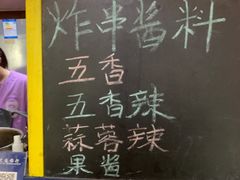 炸串酱料
五香
五香辣
蒜蓉辣
果酱